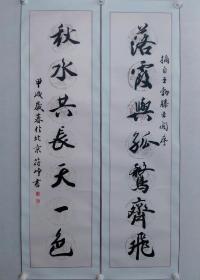 摘自王勃滕王阁序
落霞與孤鶩齊飛
秋水共長天一色
甲戌歲暮於北京